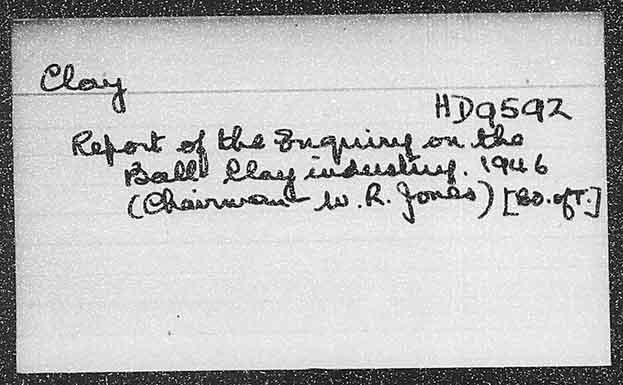 Clay
HD9592
Report of the Enquiry on the
Ball Clay industry. 1946
(Chairman W. R. Jones) [BD. of T.]